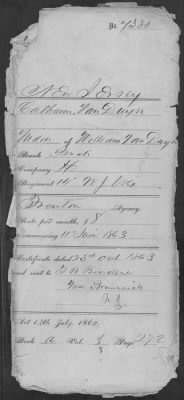 No. 7389
New Jersey
Catharine Van Duyn
Widow of William Van Duyn
Rank Private
Company H
Regiment 14" N J Vols
Trenton Agency
Rate per month, $8
Commencing 11 June 1863
Certificate dated 23d Oct 1863
and sent to
New Brunswick
N J
Act 14th July, 1862.
Book A Vol. 3 Page 272